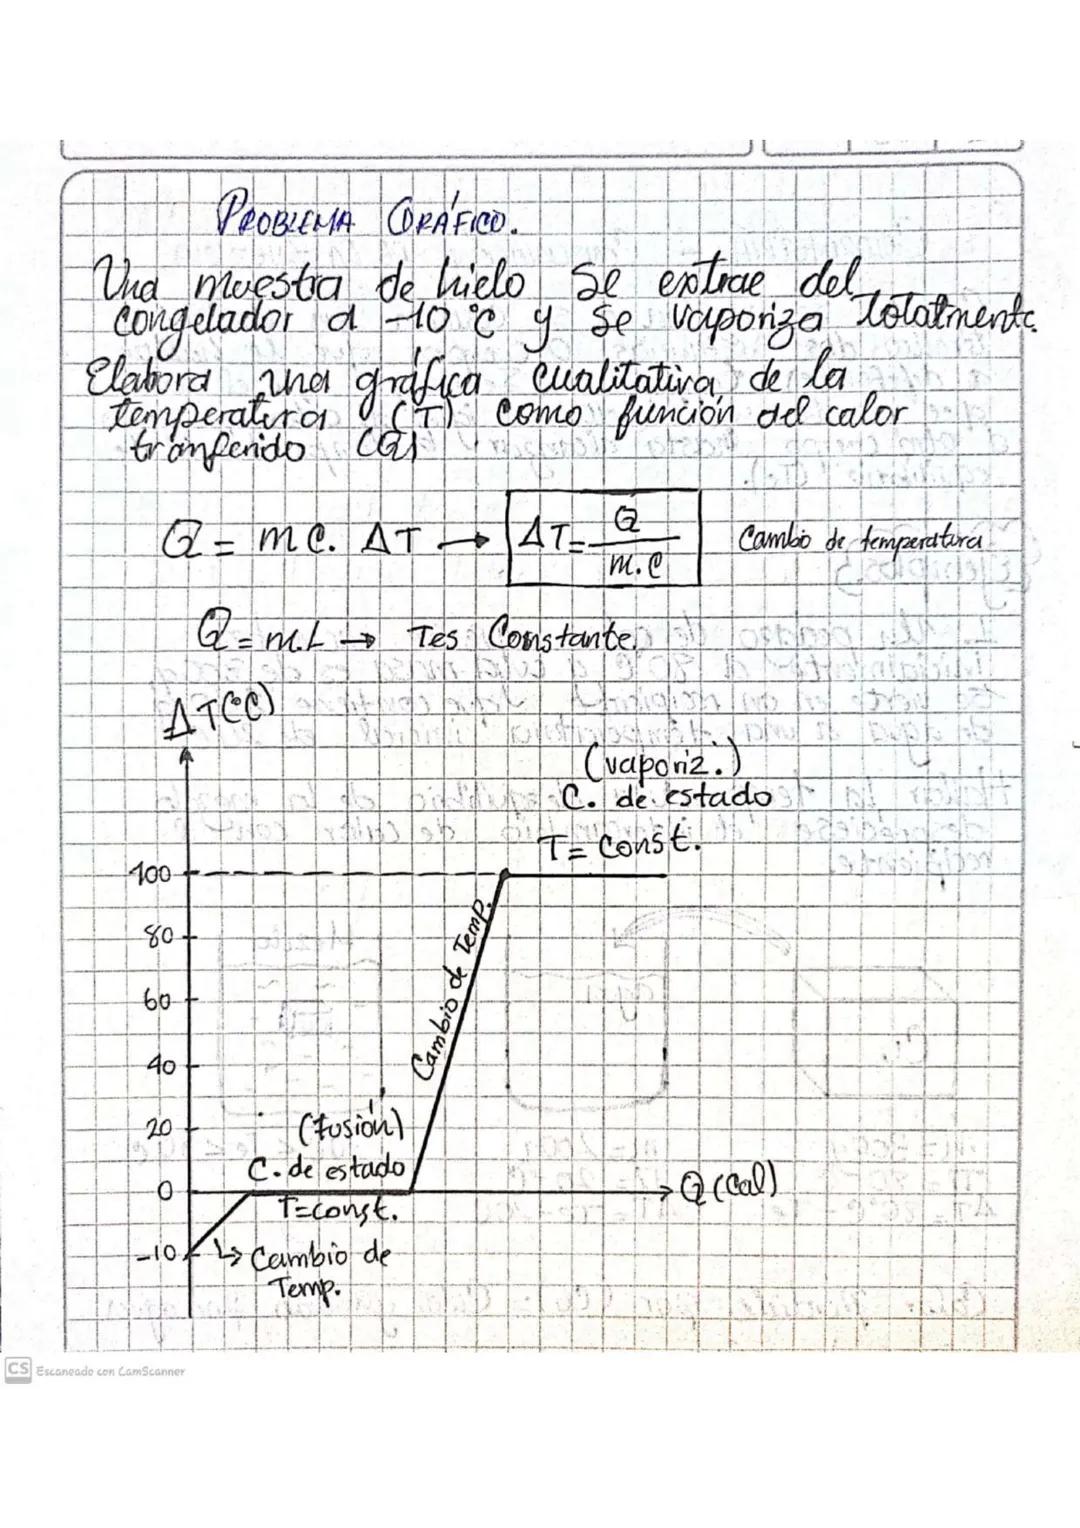 PROBLEMA GRÁFICO.
Una muestra de hielo se extrae del
congelador a -10 °C y se vaporiza totalmente.
Elabora una gráfica cualitativa de la
temperatura (T) como función del calor
tranferido (Q)
Q = m c. ΔT → ΔT = Q / m.c Cambio de temperatura
Q = m.L → T es Constante.
ΔT(°C)
(vaporiz.)
C. de estado
T = Const.
100
80
60
40
20
0
-10
Cambio de Temp.
(fusión)
C. de estado
T=const.
→ Q (cal)
↳ Cambio de
Temp.
CS Escaneado con CamScanner